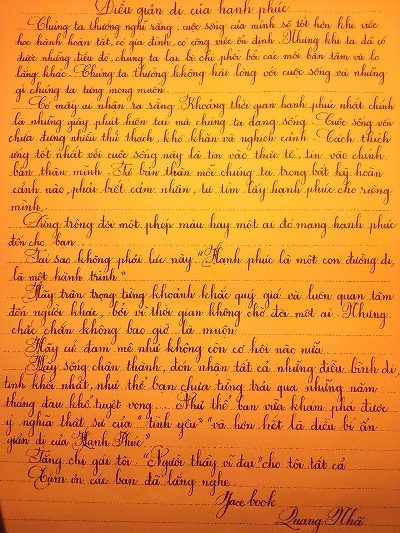 Điều giản dị của hạnh phúc
Chúng ta thường nghĩ rằng: cuộc sống của mình sẽ tốt hơn khi việc
học hành hoàn tất, có gia đình, có công việc ổn định. Nhưng khi ta đã có
được những điều đó, chúng ta lại bị chi phối bởi các mối bận tâm và lo
lắng khác. Chúng ta thường không hài lòng với cuộc sống và những
gì chúng ta từng mong muốn.
Có mấy ai nhận ra rằng: Khoảng thời gian hạnh phúc nhất chính
là những giây phút hiện tại mà chúng ta đang sống. Cuộc sống vốn
chứa đựng nhiều thử thách, khó khăn và nghịch cảnh. Cách thích
ứng tốt nhất với cuộc sống này là tin vào thực tế, tin vào chính
bản thân mình. Tự bản thân mỗi chúng ta, trong bất kỳ hoàn
cảnh nào, phải biết cảm nhận, tự tìm lấy hạnh phúc cho riêng
mình.
Đừng trông đợi một phép màu hay một ai đó mang hạnh phúc
đến cho bạn.
Tại sao không phải lúc này "Hạnh phúc là một con đường đi,
là một hành trình."
Hãy trân trọng từng khoảnh khắc quý giá và luôn quan tâm
đến người khác, bởi vì thời gian không chờ đợi một ai. Nhưng
chắc chắn không bao giờ là muộn.
Hãy cứ đam mê như không còn cơ hội nào nữa.
Hãy sống chân thành, đón nhận tất cả những điều bình dị,
tinh khôi nhất, như thể bạn chưa từng trải qua những năm
tháng đau khổ tuyệt vọng.... Như thể bạn vừa khám phá được
ý nghĩa thật sự của "tình yêu" và hơn hết là điều bí ẩn
giản dị của "Hạnh Phúc"
Tặng chị gái tôi "Người thầy vĩ đại" cho tôi tất cả
Cảm ơn các bạn đã lắng nghe
Face book
Quang Nhã